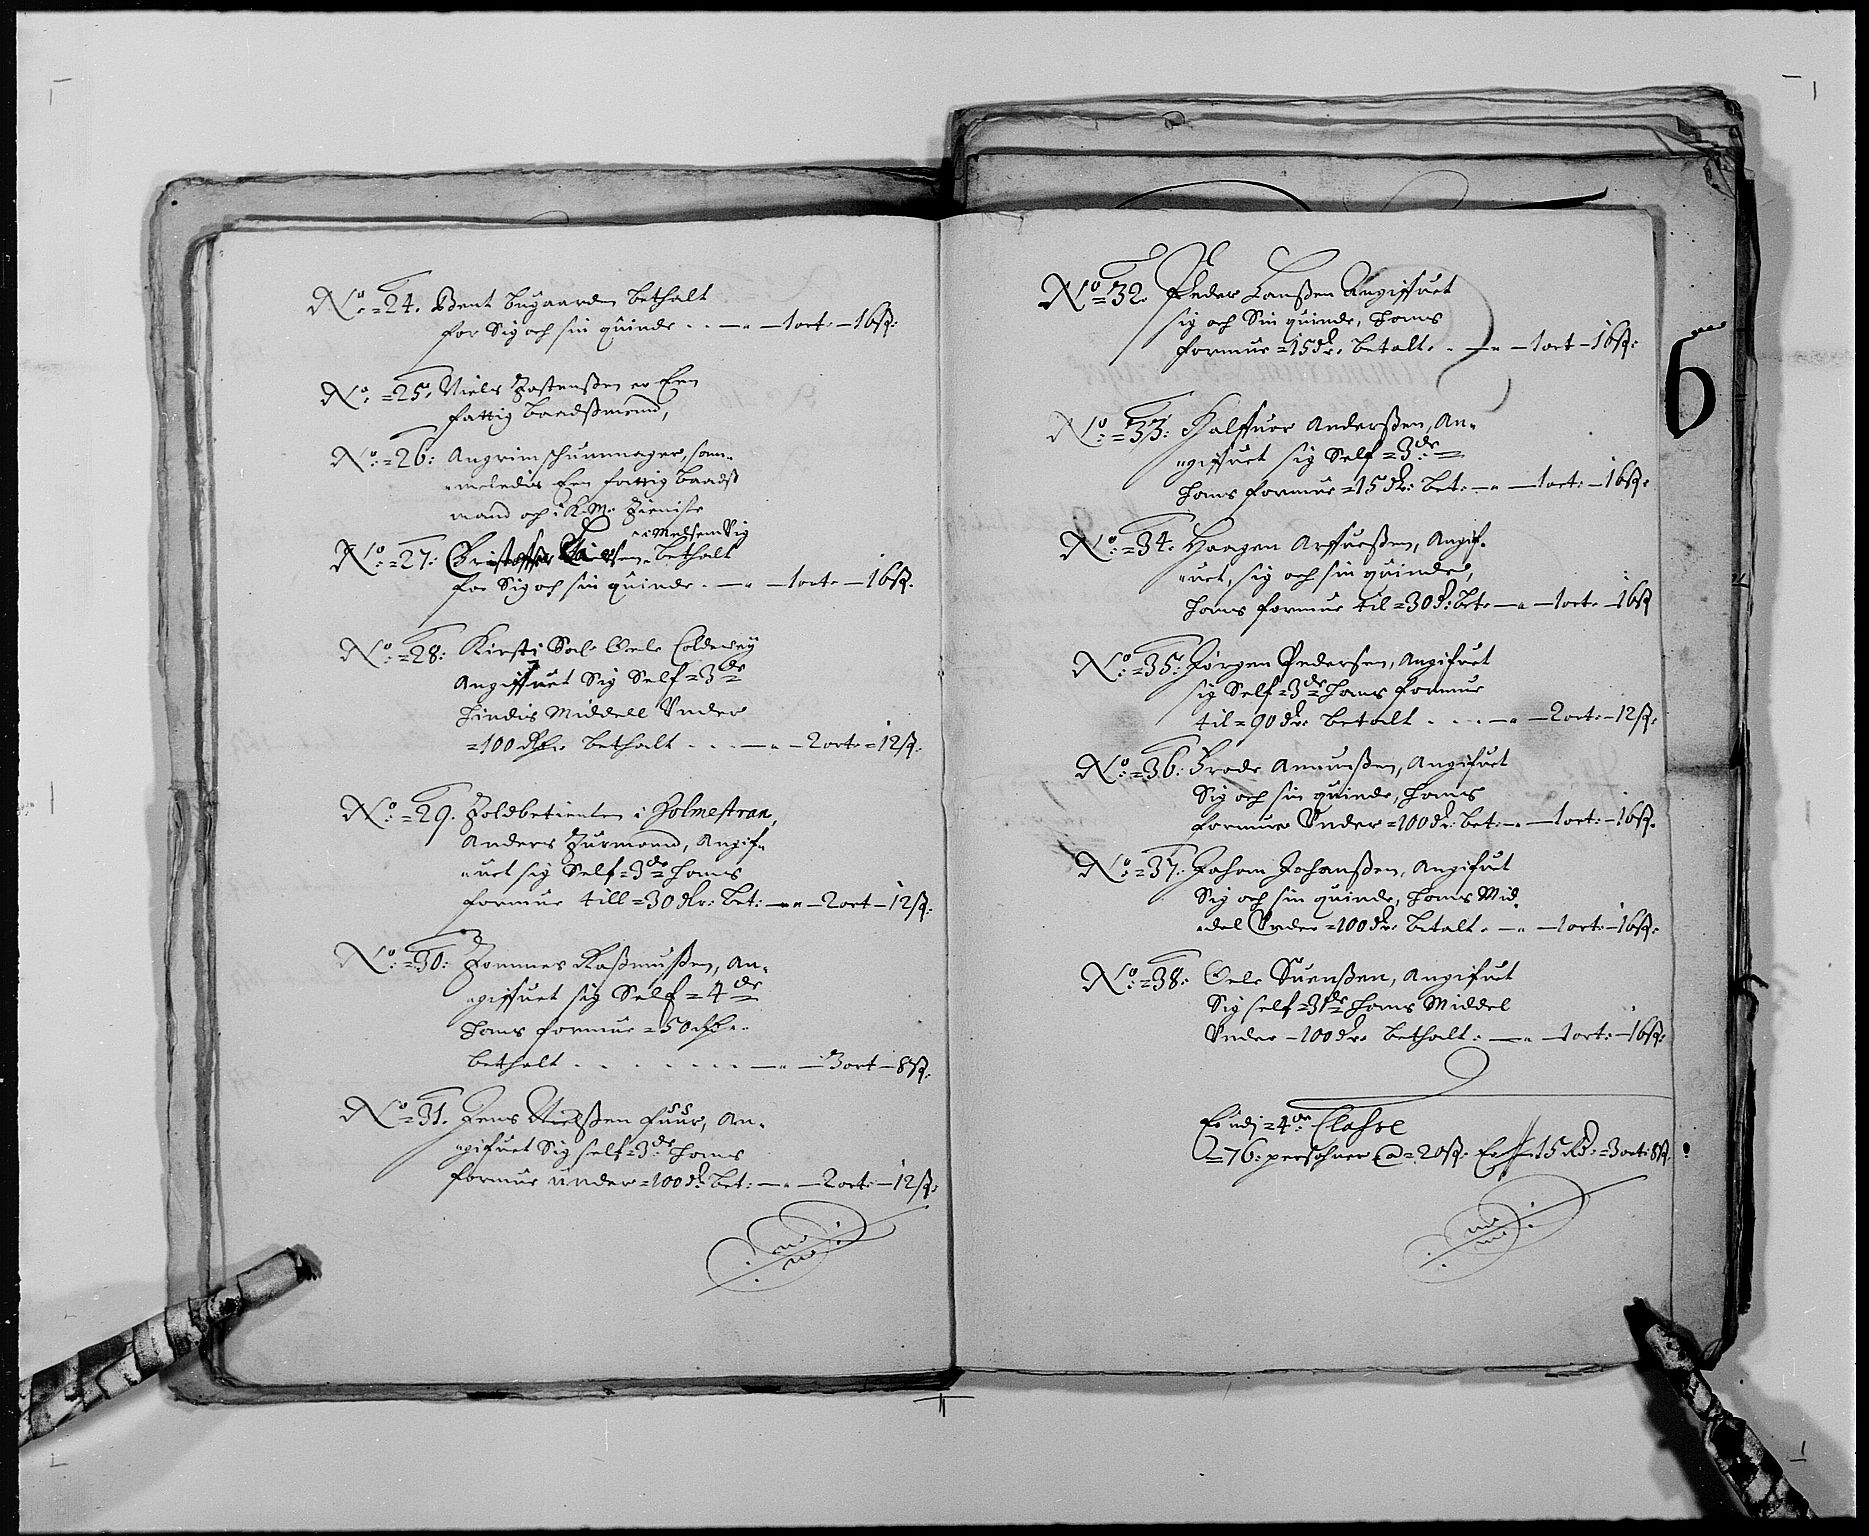 No: =24. Bent Bugaarden bethalt
for Sig och sin quinde . . — " — 1 ort. — 16ß:
No: =25. Niels Tostensßen er Een
fattig Baadsßmand,
No: =26: Angrim schuemager, sam-
-meledis Een fattig Baadsß
mand och i K. M. Tieniste
No: =27: Christoffer bethalt
for Sig och sin quinde . — " — 1 ort. — 16ß.
No: =28: Kirsti Sal: Oele Coldevey
Angiffuet Sig Self =3de
Hindis Middell Under
=100 dlr. bethalt . . . — " — 2 ort. = 12ß.
No: =29. Toldbetienten i Holmestran,
Anders Turmand, Angif-
-uet sig Self =3de Hans
formue till =30 dlr: bet: — " — 2 ort — 12ß.
No: =30: Tommes Rasßmusßen, An-
-giffuet sig Self =4de
Hans formue =50 dlr.
bethalt . . . . . . . — " — 3 ort — 8ß.
No: =31. Jens Nielsßen fuur, An-
-gifuet Sig self =3de Hans
formue under =100 dr: bet: — " — 2 ort — 12ß:
No: =32. Peder Lausßen Angiffuet
sig och Sin quinde, Hans
formue =15 dr. betalt. . — " — 1 ort — 16ß:
6
No: =33: Halffuor Andersßen, An-
-giffuet sig Self =3de
Hans formue =15 dr: bet: — " — 1 ort: — 16ß.
No: =34. Haagen Arffuesßen, Angif-
-uet, sig och sin quinde,
Hans formue til =30 d: bet. — " — 1 ort. — 16ß
No: =35: Jörgen Pedersen, Angifuet
sig Self =3de Hans formue
til =90 dr. betalt . . . — " — 2 ort. — 12ß.
No: =36: Frode Amunsßen, Angifuet
Sig och sin quinde, Hans
formue Under =100 dr: bet: — " — 1 ort: — 16ß.
No: =37. Johan Johansßen, Angifuet
Sig och sin quinde, Hans Mid-
-del Under =100 dr. betalt. — " — 1 ort. — 16ß.
No: =38: Oele Suensßen, Angifuet
Sig self =3de Hans Middel
Under — 100 dr. bethalt. — " — 1 ort. — 16ß:
Er udj =4de Classe
=76: persohner @ =20ß. Er 15 Rd. =3 ort: 8ß.